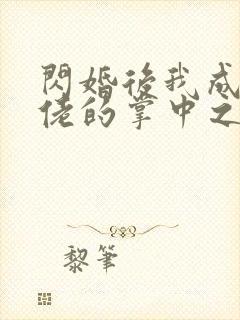 閃婚後我成
佬的掌中之
黎筆